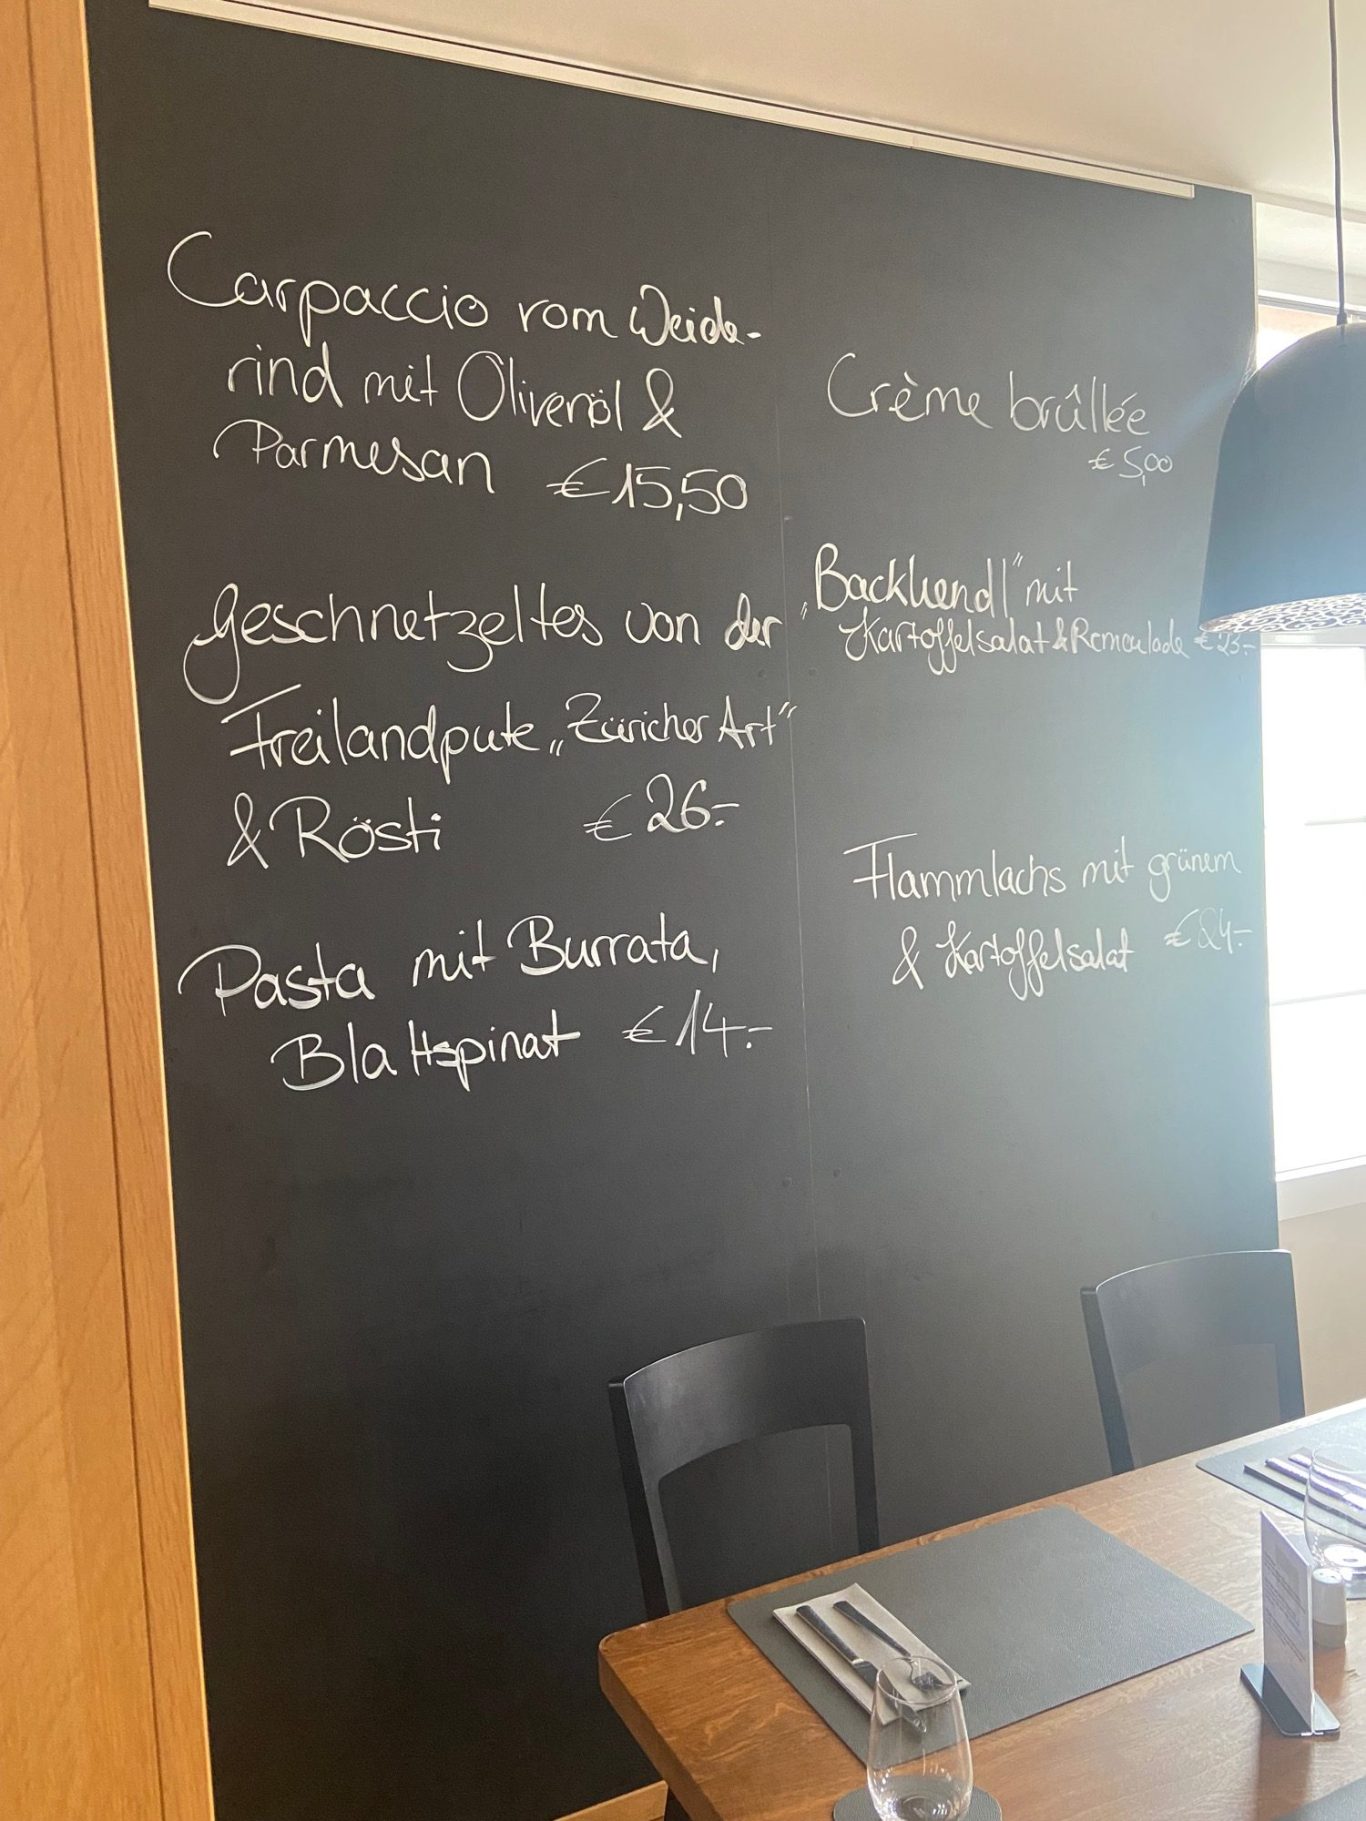 Carpaccio vom Weide-
rind mit Olivenöl &
Parmesan €15,50
Geschnetzeltes von der
Freilandpute „Züricher Art“
& Rösti €26.-
Pasta mit Burrata,
Blattspinat €14.-
Crème brûllée
€5,00
„Backhendl“ mit
Kartoffelsalat & Remoulade € 23.-
Flammlachs mit grünem
& Kartoffelsalat € 24.-